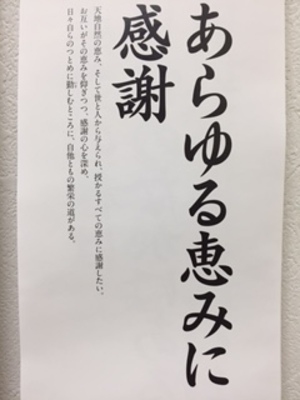 あらゆる恵みに
感謝
天地自然の恵み、そして世と人から与えられ、授かるすべての恵みに感謝したい。
お互いがその恵みを仰ぎつつ、感謝の心を深め、
日々自らのつとめに勤しむところに、自他ともの繁栄の道がある。